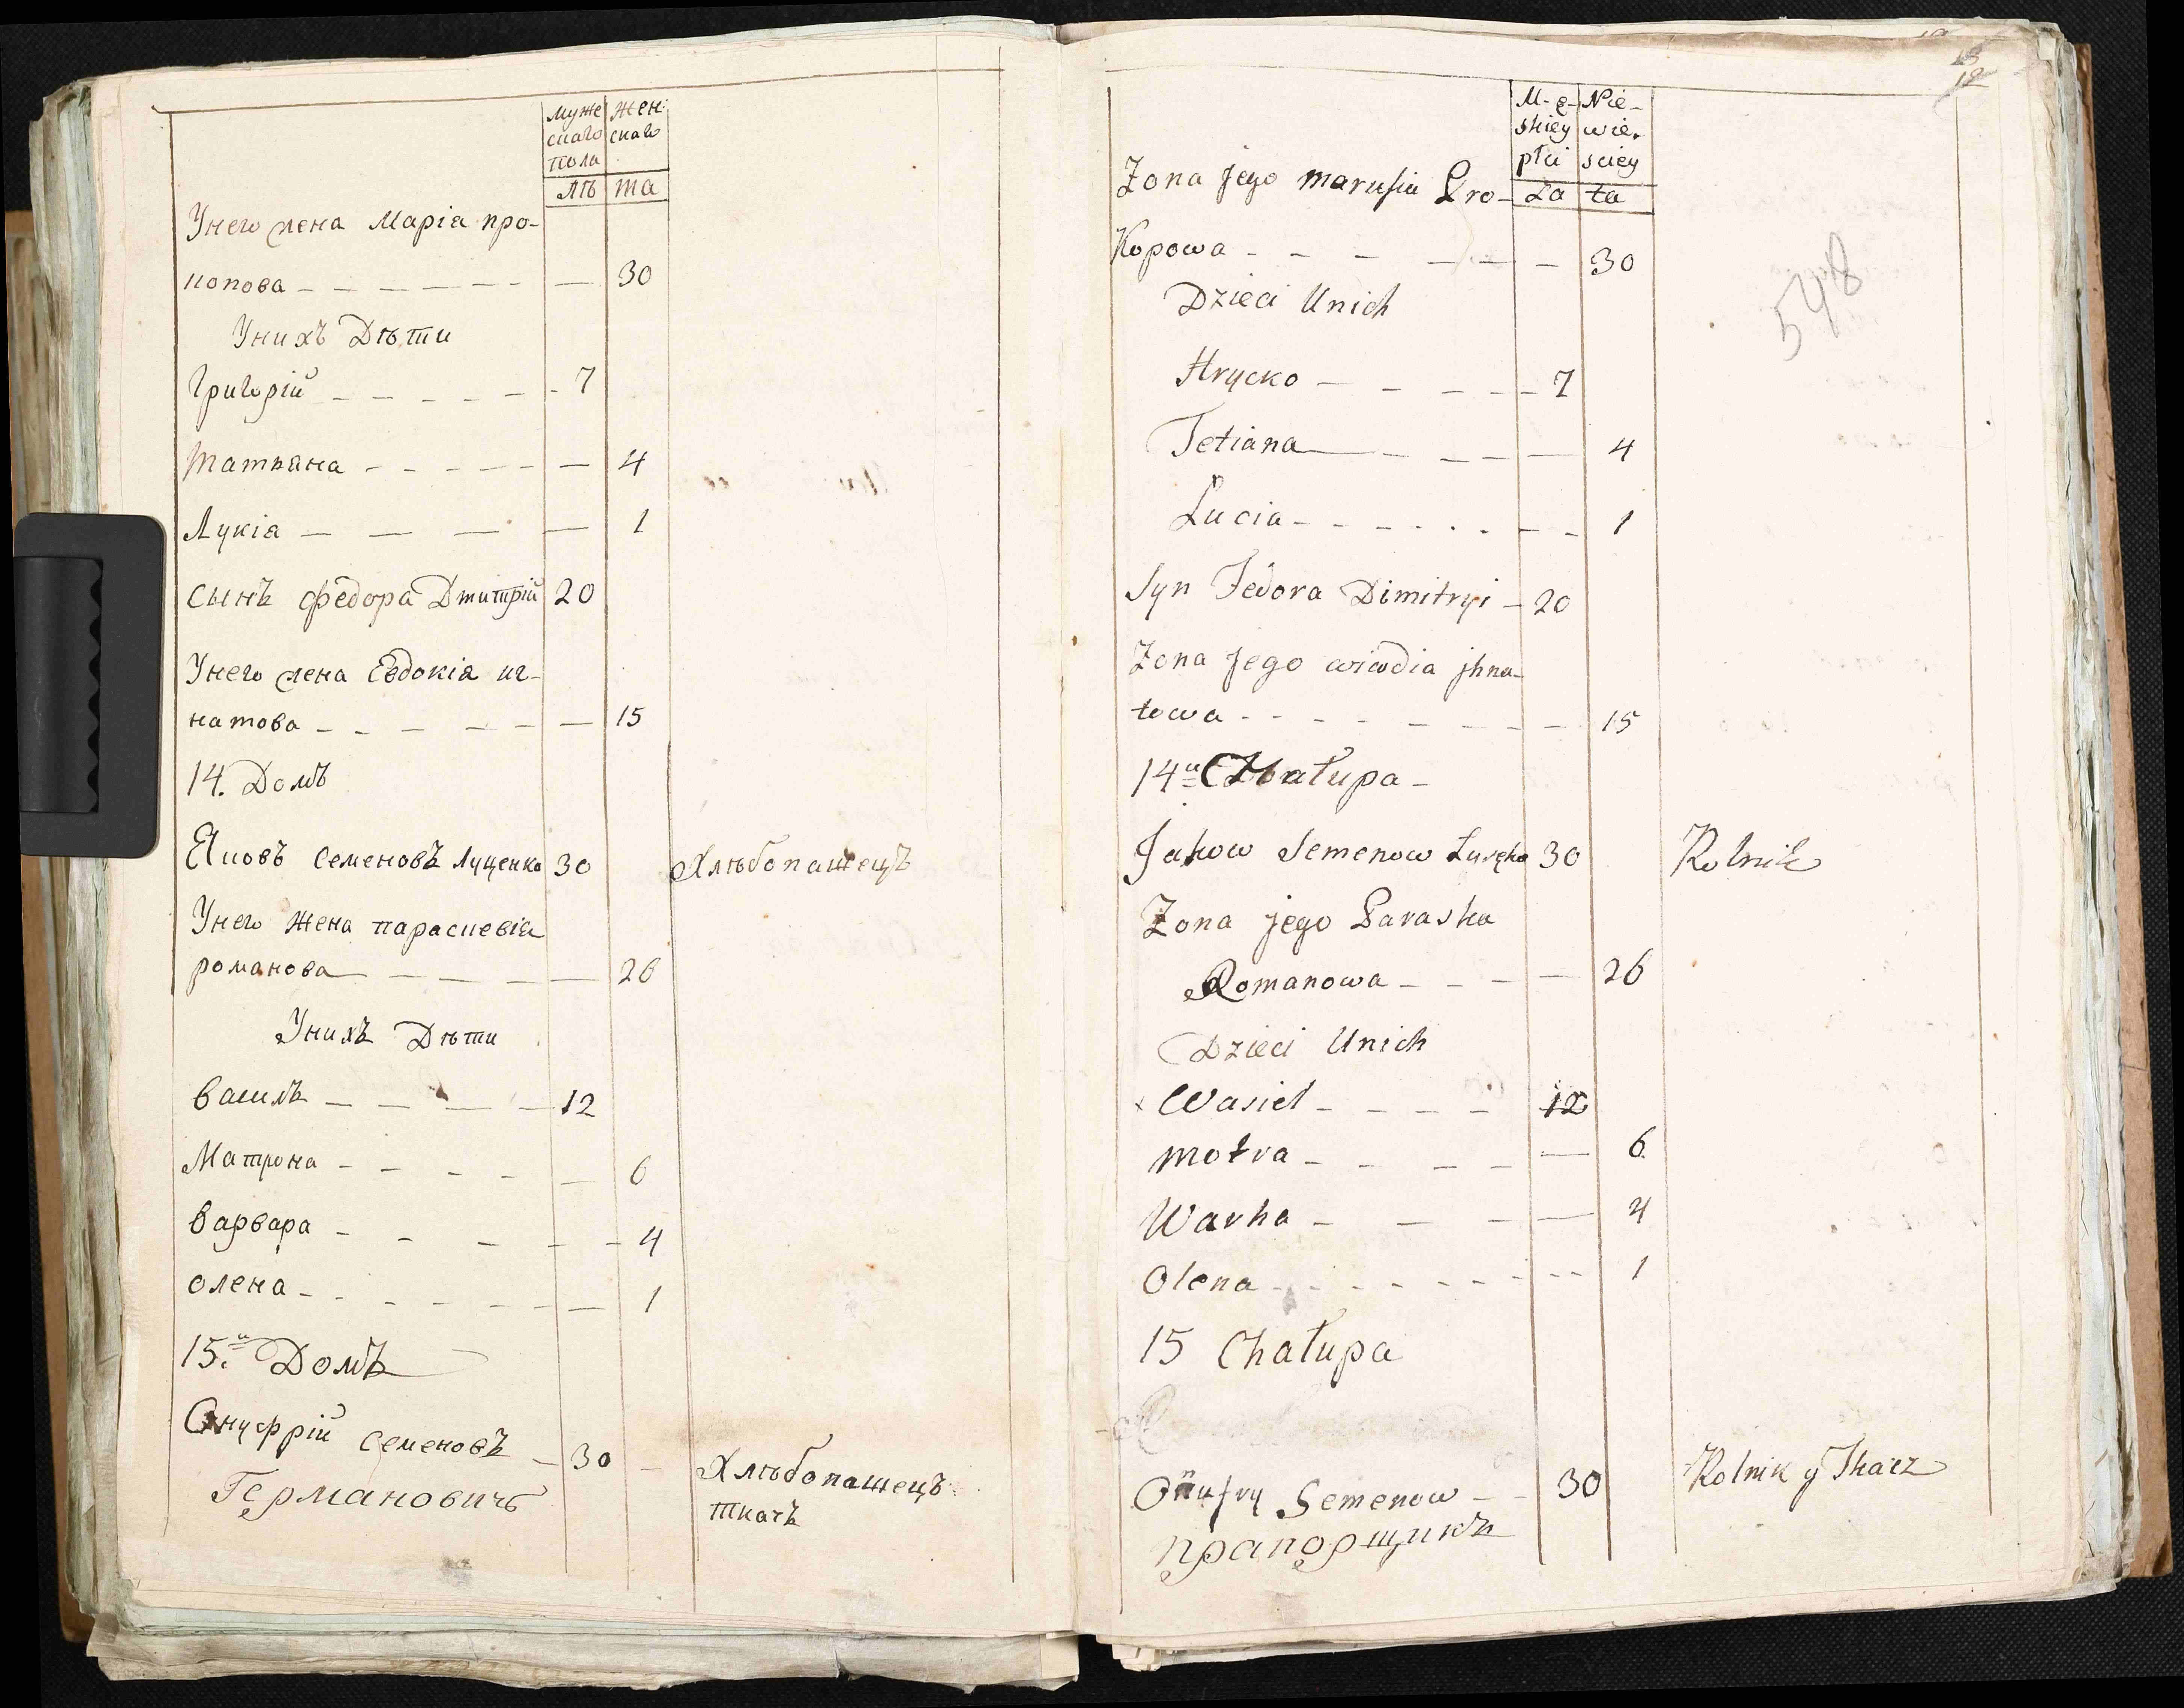 Муже жен:
скаго скаго
пола
лѣ та
Унего жена Марiа про-
копова 30
Унихъ Дѣти
Григорiй 7
Татьяна 4
Лукiа 1
сынъ федора Дмитрiй 20
Унего жена Евдокiа иг-
натова 15
14. Домъ
Яковъ Семеновъ Луценко 30 Хлѣбопашецъ
Унего жена параскевiа
романова 26
Унихъ Дѣти
василь 12
Матрона 6
варвара 4
олена 1
15.й Домъ
Онуфрiй Семеновъ 30 Хлѣбопашецъ
Германовичъ ткачъ
12
M-ę- Nie-
skiey wie-
płci sciey
La ta
Zona jego marusia Pro-
Kopowa 30
548
Dzieci Unich
Hrycko 7
Tetiana 4
Lucia 1
Syn Fedora Dimitryi 20
Zona jego jhna-
towa 15
14а Chałupa
Jakow Semenow 30 Rolnik
Zona jego Paraska
Romanowa 26
Dzieci Unich
Wasiel 12
motra 6
Warka 4
Olena 1
15 Chałupa
Onufry Semenow 30 Rolnik y Tkacz
прапорщикъ